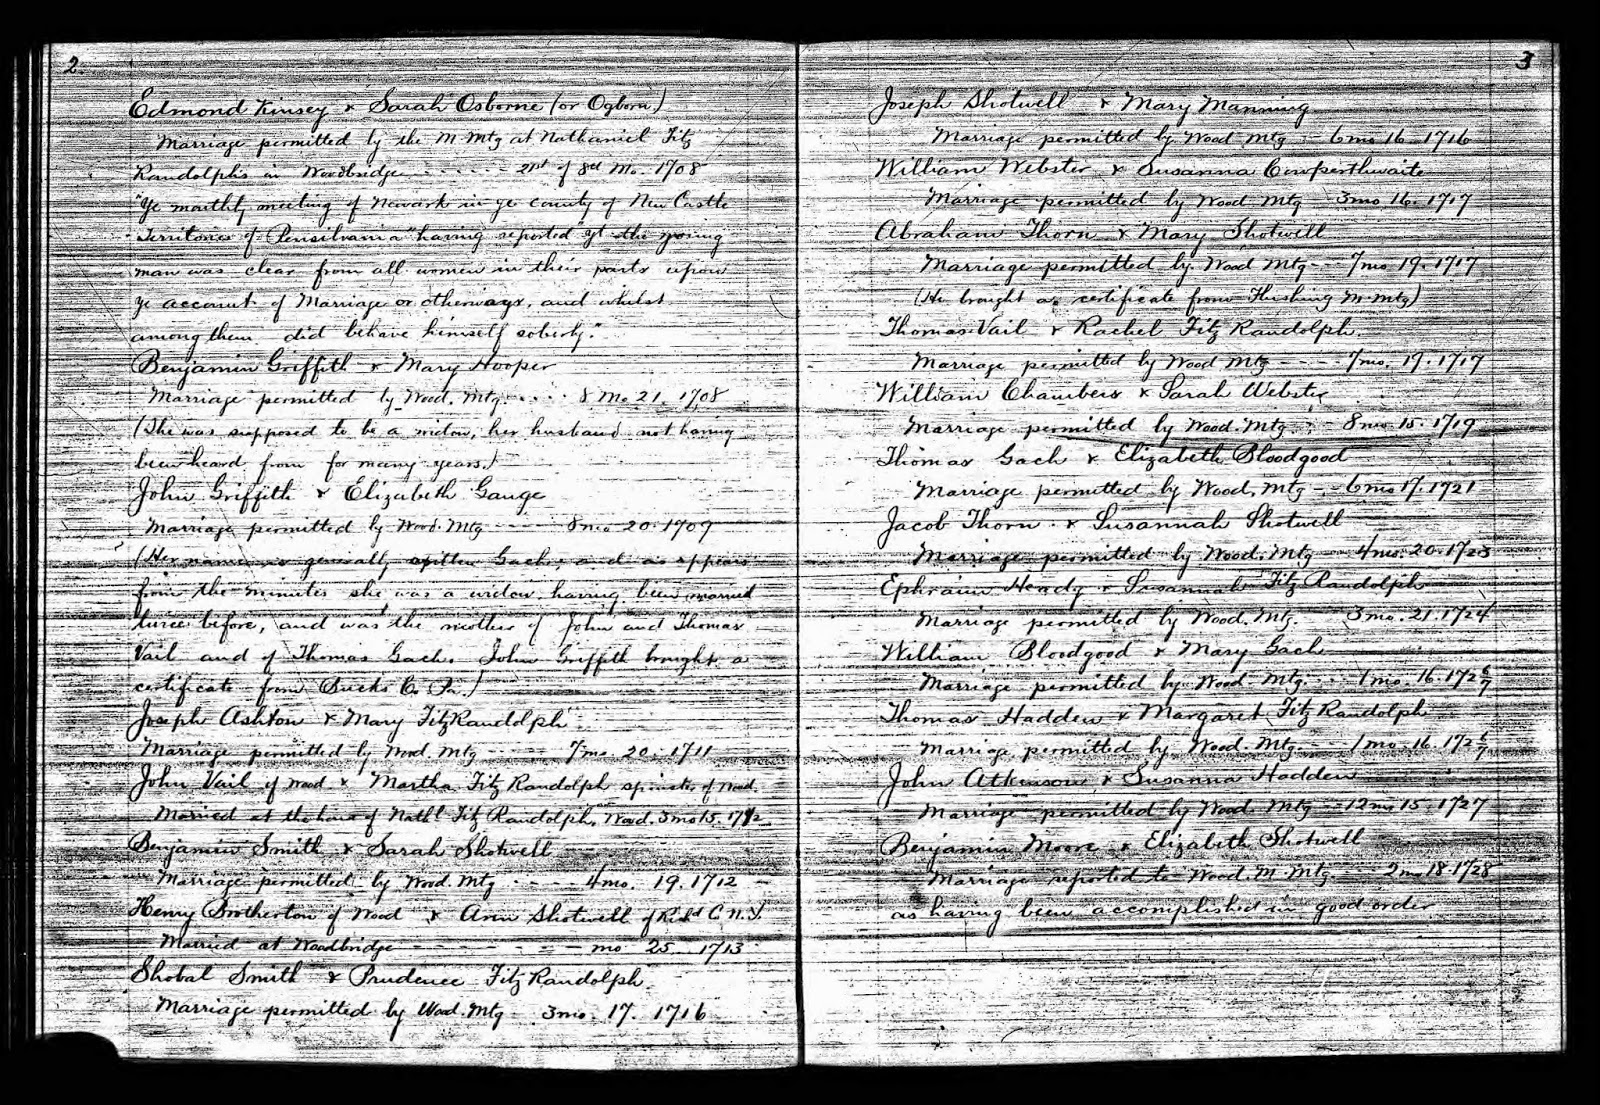 2.
Edmond Kinsey & Sarah Osborne (or Ogborn)
Marriage permitted by the M. Mtg at Nathaniel Fitz
Randolph's in Woodbridge ---- 21st of 8th Mo. 1708
"Ye monthly meeting of Newark in ye county of New Castle
Territories of Pensilvania" having reported "yt the young
man was clear from all women in their parts upon
ye account of Marriage or otherways, and whilst
among them did behave himself soberly."
Benjamin Griffith & Mary Hooper
Marriage permitted by Wood. Mtg. ---- 8 Mo 21. 1708
(She was supposed to be a widow, her husband not having
been heard from for many years.)
John Griffith & Elizabeth Gauge
Marriage permitted by Wood. Mtg ---- 8 mo 20. 1709
(Her name is generally written Gach, and as appears
from the minutes she was a widow having been married
twice before, and was the mother of John and Thomas
Vail and of Thomas Gach. John Griffith brought a
certificate from Bucks Co. Pa.)
Joseph Ashton & Mary FitzRandolph
Marriage permitted by Wood. Mtg ---- 7 mo. 20. 1711
John Vail of Wood & Martha Fitz Randolph spinster of Wood.
Married at the house of Nathl Fitz Randolph, Wood. 3 mo 15. 1712
Benjamin Smith & Sarah Shotwell
Marriage permitted by Wood. Mtg --- 4 mo. 19. 1712
Henry Brotherton of Wood & Ann Shotwell of
Married at Woodbridge ---- mo 25 1713
Shobal Smith & Prudence Fitz Randolph
Marriage permitted by Wood. Mtg - 3 mo. 17. 1716
3
Joseph Shotwell & Mary Manning
Marriage permitted by Wood Mtg -- 6 mo 16 1716
William Webster & Susanna Cowperthwaite
Marriage permitted by Wood. Mtg - 3 mo 16. 1717
Abraham Thorn & Mary Shotwell
Marriage permitted by Wood Mtg -- 7 mo 19. 1717
(He brought a certificate from Flushing M. Mtg)
Thomas Vail & Rachel Fitz Randolph.
Marriage permitted by Wood Mtg ---- 7 mo. 19. 1717
William Chambers & Sarah Webster
Marriage permitted by Wood. Mtg. - 8 mo 15. 1719
Thomas Gach & Elizabeth Bloodgood
Marriage permitted by Wood. Mtg -- 6 mo 17. 1721
Jacob Thorn & Susannah Shotwell
Marriage permitted by Wood. Mtg - 4 mo. 20. 1723
Ephraim Heady & Susannah Fitz Randolph
Marriage permitted by Wood. Mtg. 3 mo. 21. 1724
William Bloodgood & Mary Gach
Marriage permitted by Wood Mtg. --- 1 mo. 16 172 6/7
Thomas Hadden & Margaret Fitz Randolph
Marriage permitted by Wood. Mtg -- 1 mo 16. 172 6/7
John Atkinson & Susanna Hadden
Marriage permitted by Wood Mtg - 12 mo 15. 1727
Benjamin Moore & Elizabeth Shotwell
Marriage reported to Wood. M. Mtg. --- 2 mo 18. 1728
as having been accomplished in good order